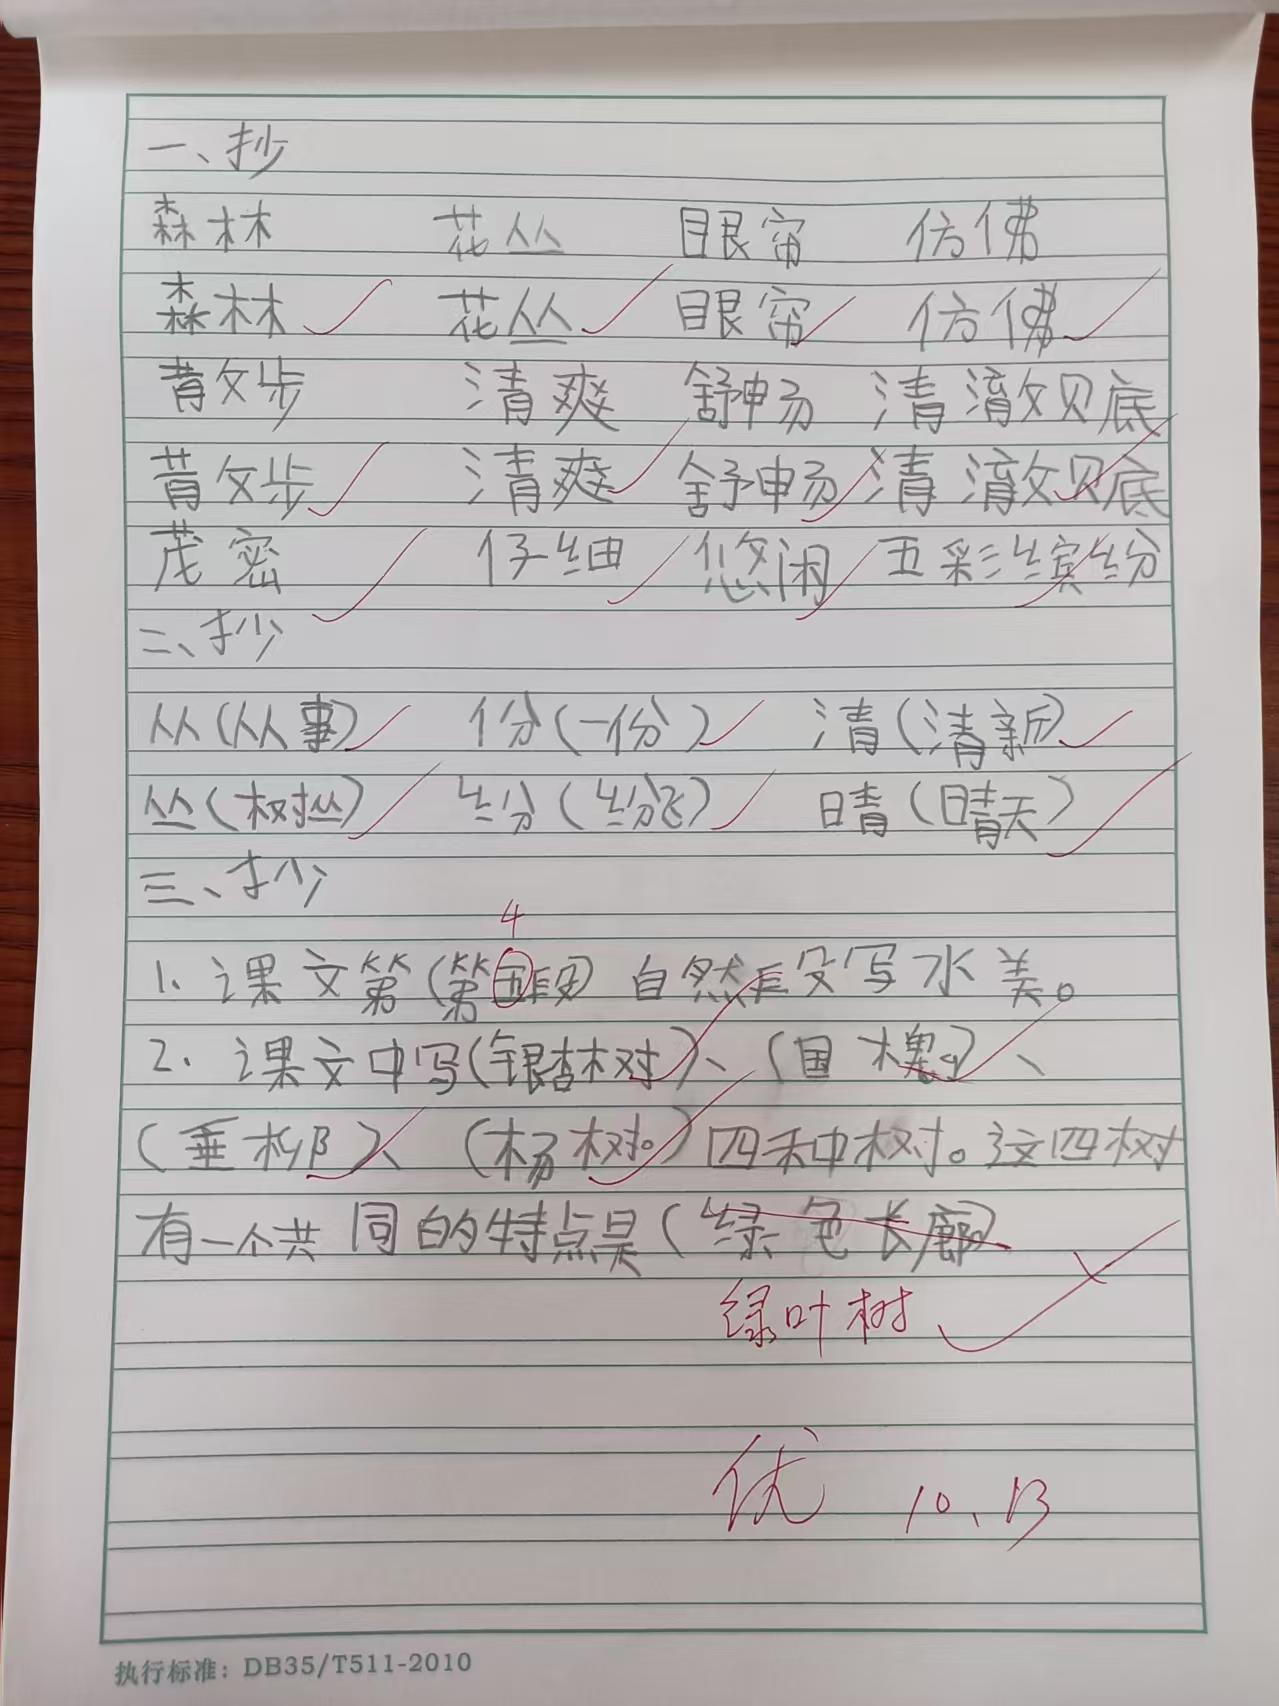 一、抄
森林 花丛 眼帘 仿佛
森林 花丛 眼帘 仿佛
散步 清爽 舒畅 清澈见底
散步 清爽 舒畅 清澈见底
茂密 仔细 悠闲 五彩缤纷
二、抄
从(从事) 份(一份) 清(清新)
丛(树丛) 纷(纷飞) 晴(晴天)
三、抄
4
1.课文第(第五段)自然段写水美。
2.课文中写(银杏树)、(国槐)、
(垂柳)、(杨树。)四种树。这四树
有一个共同的特点是(绿色长廊)
绿叶树
优 10.13
执行标准：DB35/T511-2010